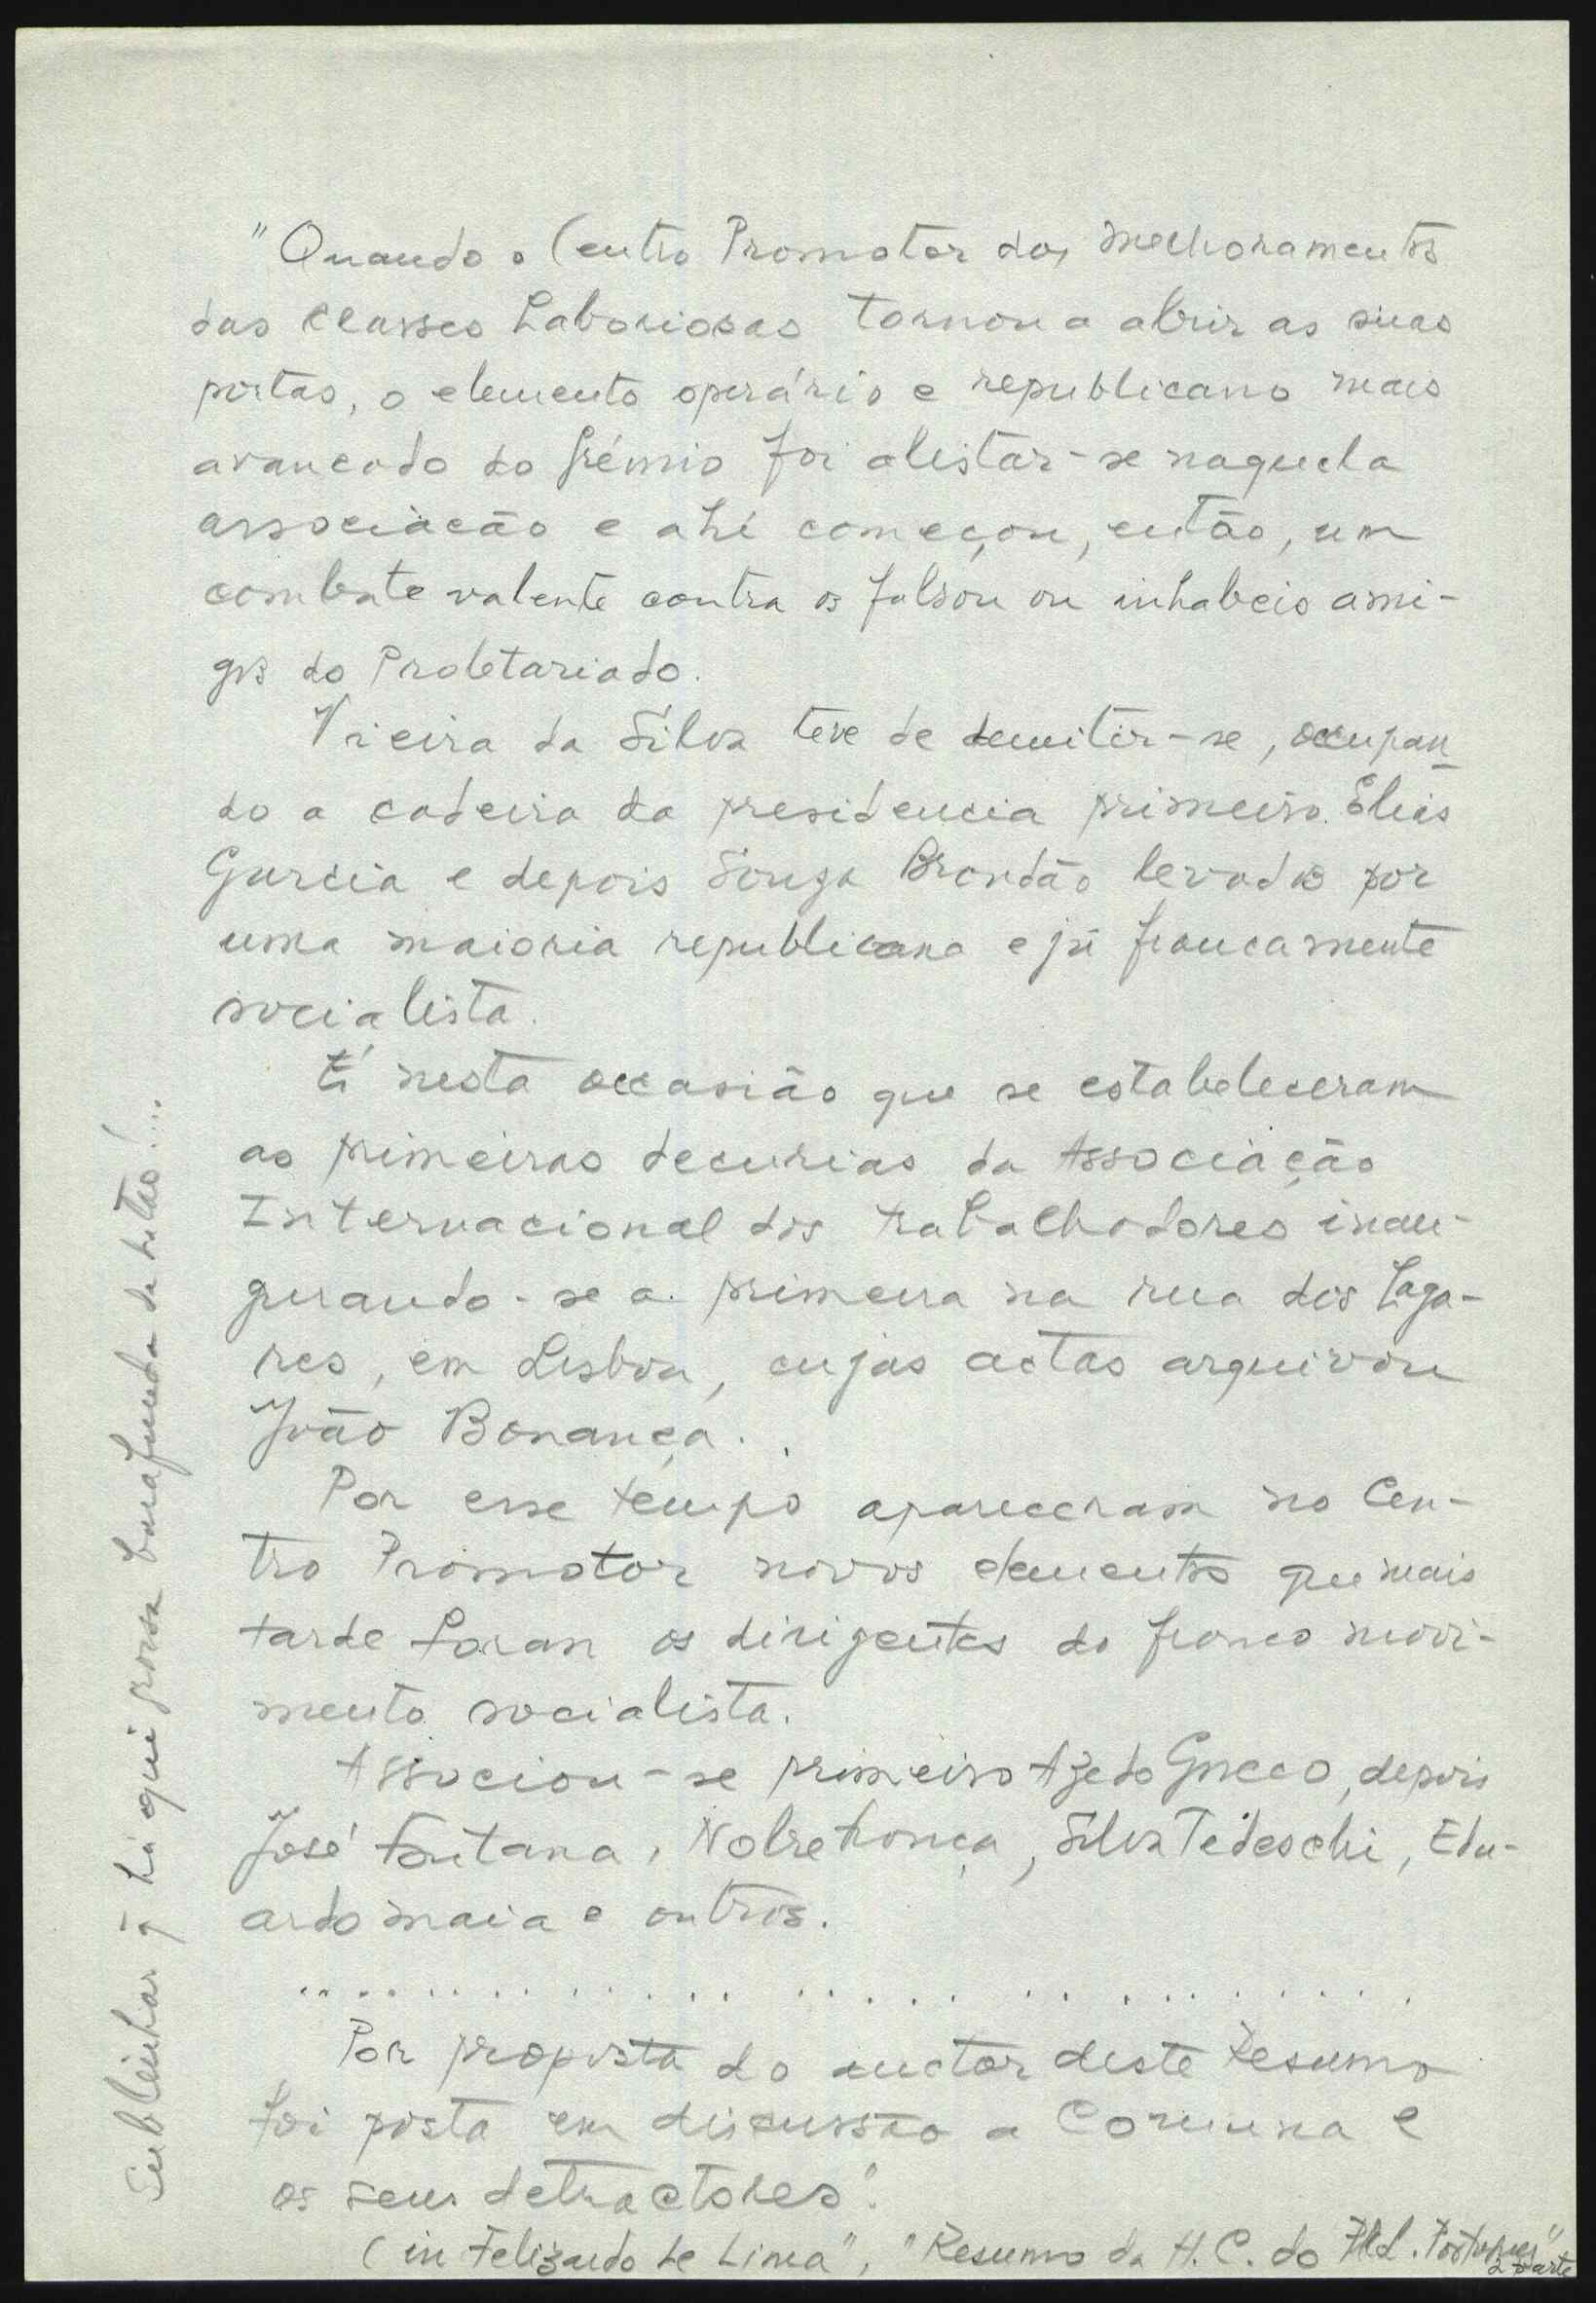 "Quando o Centro Promotor dos Melhoramentos
das Classes Laboriosas tornou a abrir as suas
portas, o elemento operário e republicano mais
avancado do Grémio foi alistar-se naquela
associacão e ahi começou, então, um
combate valente contra os falsou ou inhabeis ami-
gos do Proletariado.
Vieira da Silva teve de demitir-se, occupan
do a cadeira da presidencia primeiro Elias
Garcia e depois Souza Brandão levados por
uma maioria republicana e já francamente
socialista.
É nesta occasião que se estabeleceram
as primeiras decurias da Associação
Internacional dos Trabalhadores inau-
gurando-se a primeira na rua dos Laga-
res, em Lisboa, cujas actas arquivou
João Bonança.
Por esse tempo apareceram no Cen-
tro Promotor novos elementos que mais
tarde foram os dirigentes do franco movi-
mento socialista.
Associou-se primeiro Azedo Gneco, depois
José Fontana, Nobre França, Silva Tedeschi, Edu-
ardo Maia e outros.
. . . . . . . . . . . . . . . . . . . . . . . . . .
Por proposta do auctor deste Resumo
foi posta em discussão a Comuna e
os seus detractores".
(in Felizardo de Lima", "Resumo da H. C. do Portugues"
2ª parte
Sublinhar q̃ há aqui grossa barafunda de datas!...